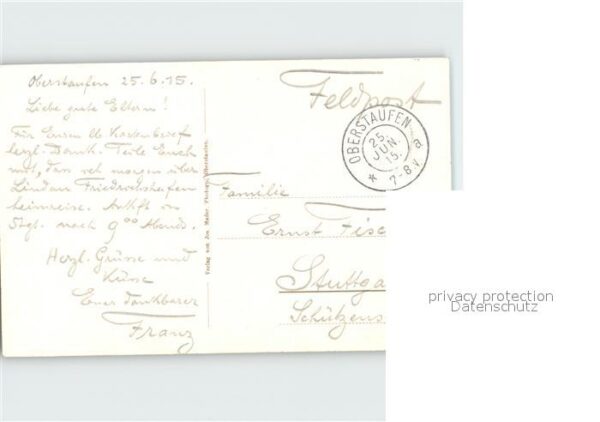 Oberstaufen 25.6.15.
Liebe gute Eltern!
Für Euren lb Kartenbrief
herzl. Dank. Teile Euch
mit, dass ich morgen über
Lindau Friedrichshafen
heimreise. Ankft in
Stgt. nach 9 00 Abends.
Herzl. Grüsse und
Küsse
Euer dankbarer
Franz
Verlag von Jos. Mader, Photogr., Oberstaufen.
Feldpost
OBERSTAUFEN
25.
JUN.
15.
7-8 V.
Familie
Ernst Fisc
Stuttga
Schützens
privacy protection
Datenschutz